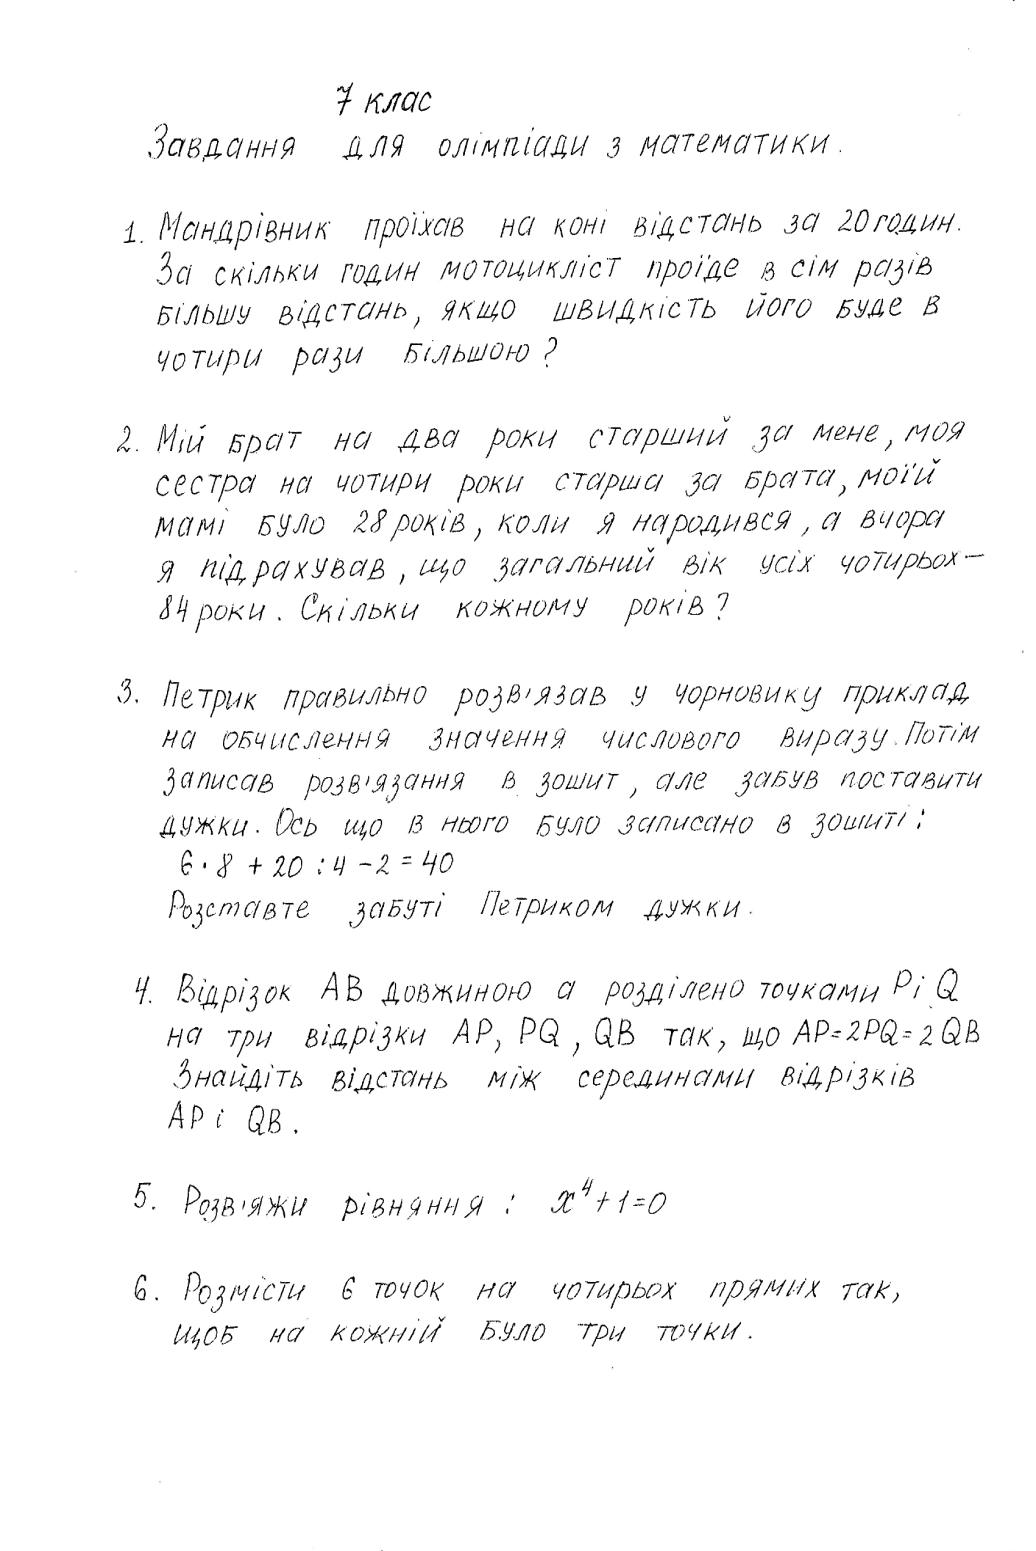 7 клас
Завдання для олімпіади з математики.
1. Мандрівник проїхав на коні відстань за 20 годин.
За скільки годин мотоцикліст проїде в сім разів
більшу відстань, якщо швидкість його буде в
чотири рази більшою?
2. Мій брат на два роки старший за мене, моя
сестра на чотири роки старша за брата, моїй
мамі було 28 років, коли я народився, а вчора
я підрахував, що загальний вік усіх чотирьох –
84 роки. Скільки кожному років?
3. Петрик правильно розв'язав у чорновику приклад
на обчислення значення числового виразу. Потім
записав розв'язання в зошит, але забув поставити
дужки. Ось що в нього було записано в зошиті:
6 · 8 + 20 : 4 - 2 = 40
Розставте забуті Петриком дужки.
4. Відрізок AB довжиною a розділено точками P і Q
на три відрізки AP, PQ, QB так, що AP=2PQ=2QB
Знайдіть відстань між серединами відрізків
AP і QB.
5. Розв'яжи рівняння: x⁴+1=0
6. Розмісти 6 точок на чотирьох прямих так,
щоб на кожній було три точки.